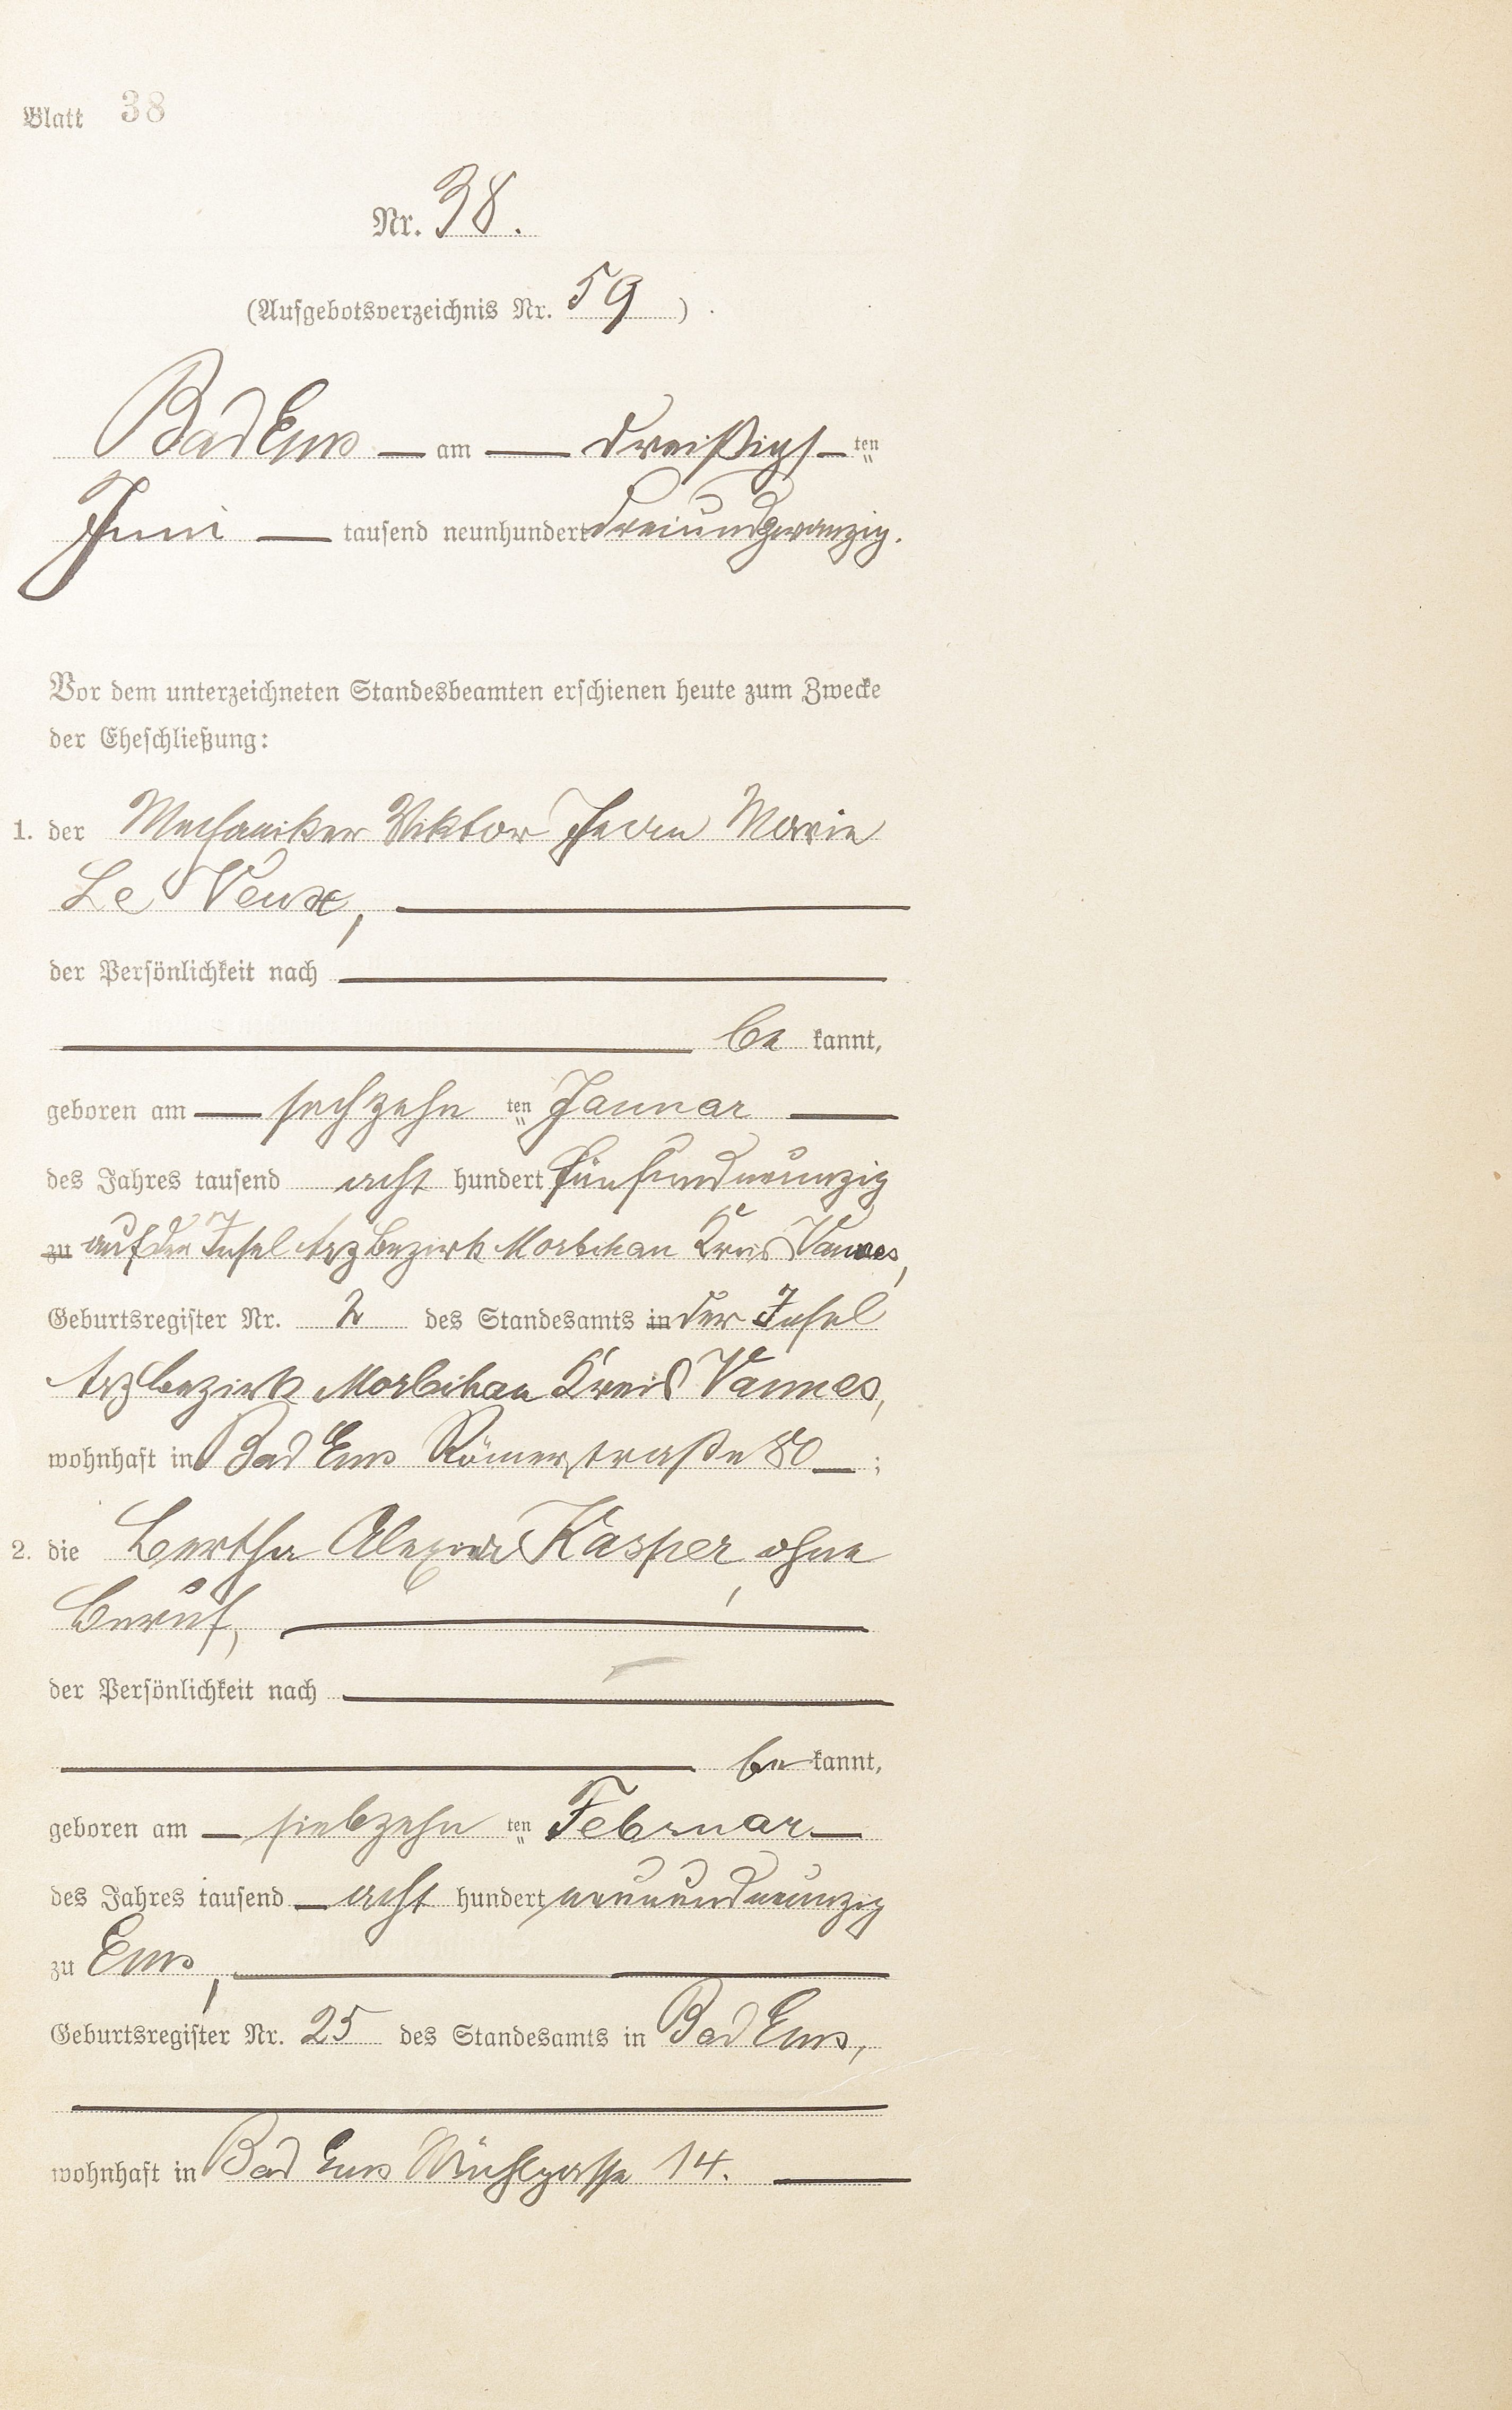 Blatt 38
Nr. 38.
(Aufgebotsverzeichnis Nr. 59)
Bad Ems — am — dreißigst- ten
Juni — tausend neunhundert dreiundzwanzig.
Vor dem unterzeichneten Standesbeamten erschienen heute zum Zwecke
der Eheschließung:
1. der Mechaniker Viktor Jean Marie
Le Veux,
der Persönlichkeit nach
be kannt,
geboren am — sechzehn ten Januar —
des Jahres tausend acht hundert fünfundneunzig
zu auf der Insel Arz Bezirk Morbihan Kreis Vannes,
Geburtsregister Nr. 2 des Standesamts in der Insel
Arz Bezirk Morbihan Kreis Vannes,
wohnhaft in Bad Ems Römerstraße 80 — ;
2. die Bertha Kasper, ohne
Beruf,
der Persönlichkeit nach
be kannt,
geboren am — siebzehn ten Februar —
des Jahres tausend — acht hundert neunundneunzig
zu Ems,
Geburtsregister Nr. 25 des Standesamts in Bad Ems,
wohnhaft in Bad Ems Mühlgasse 14. —